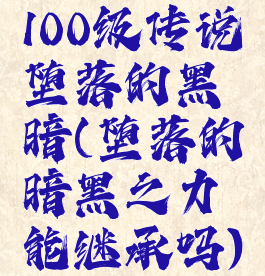 100级传说
堕落的黑
暗(堕落的
暗黑之力
能继承吗)